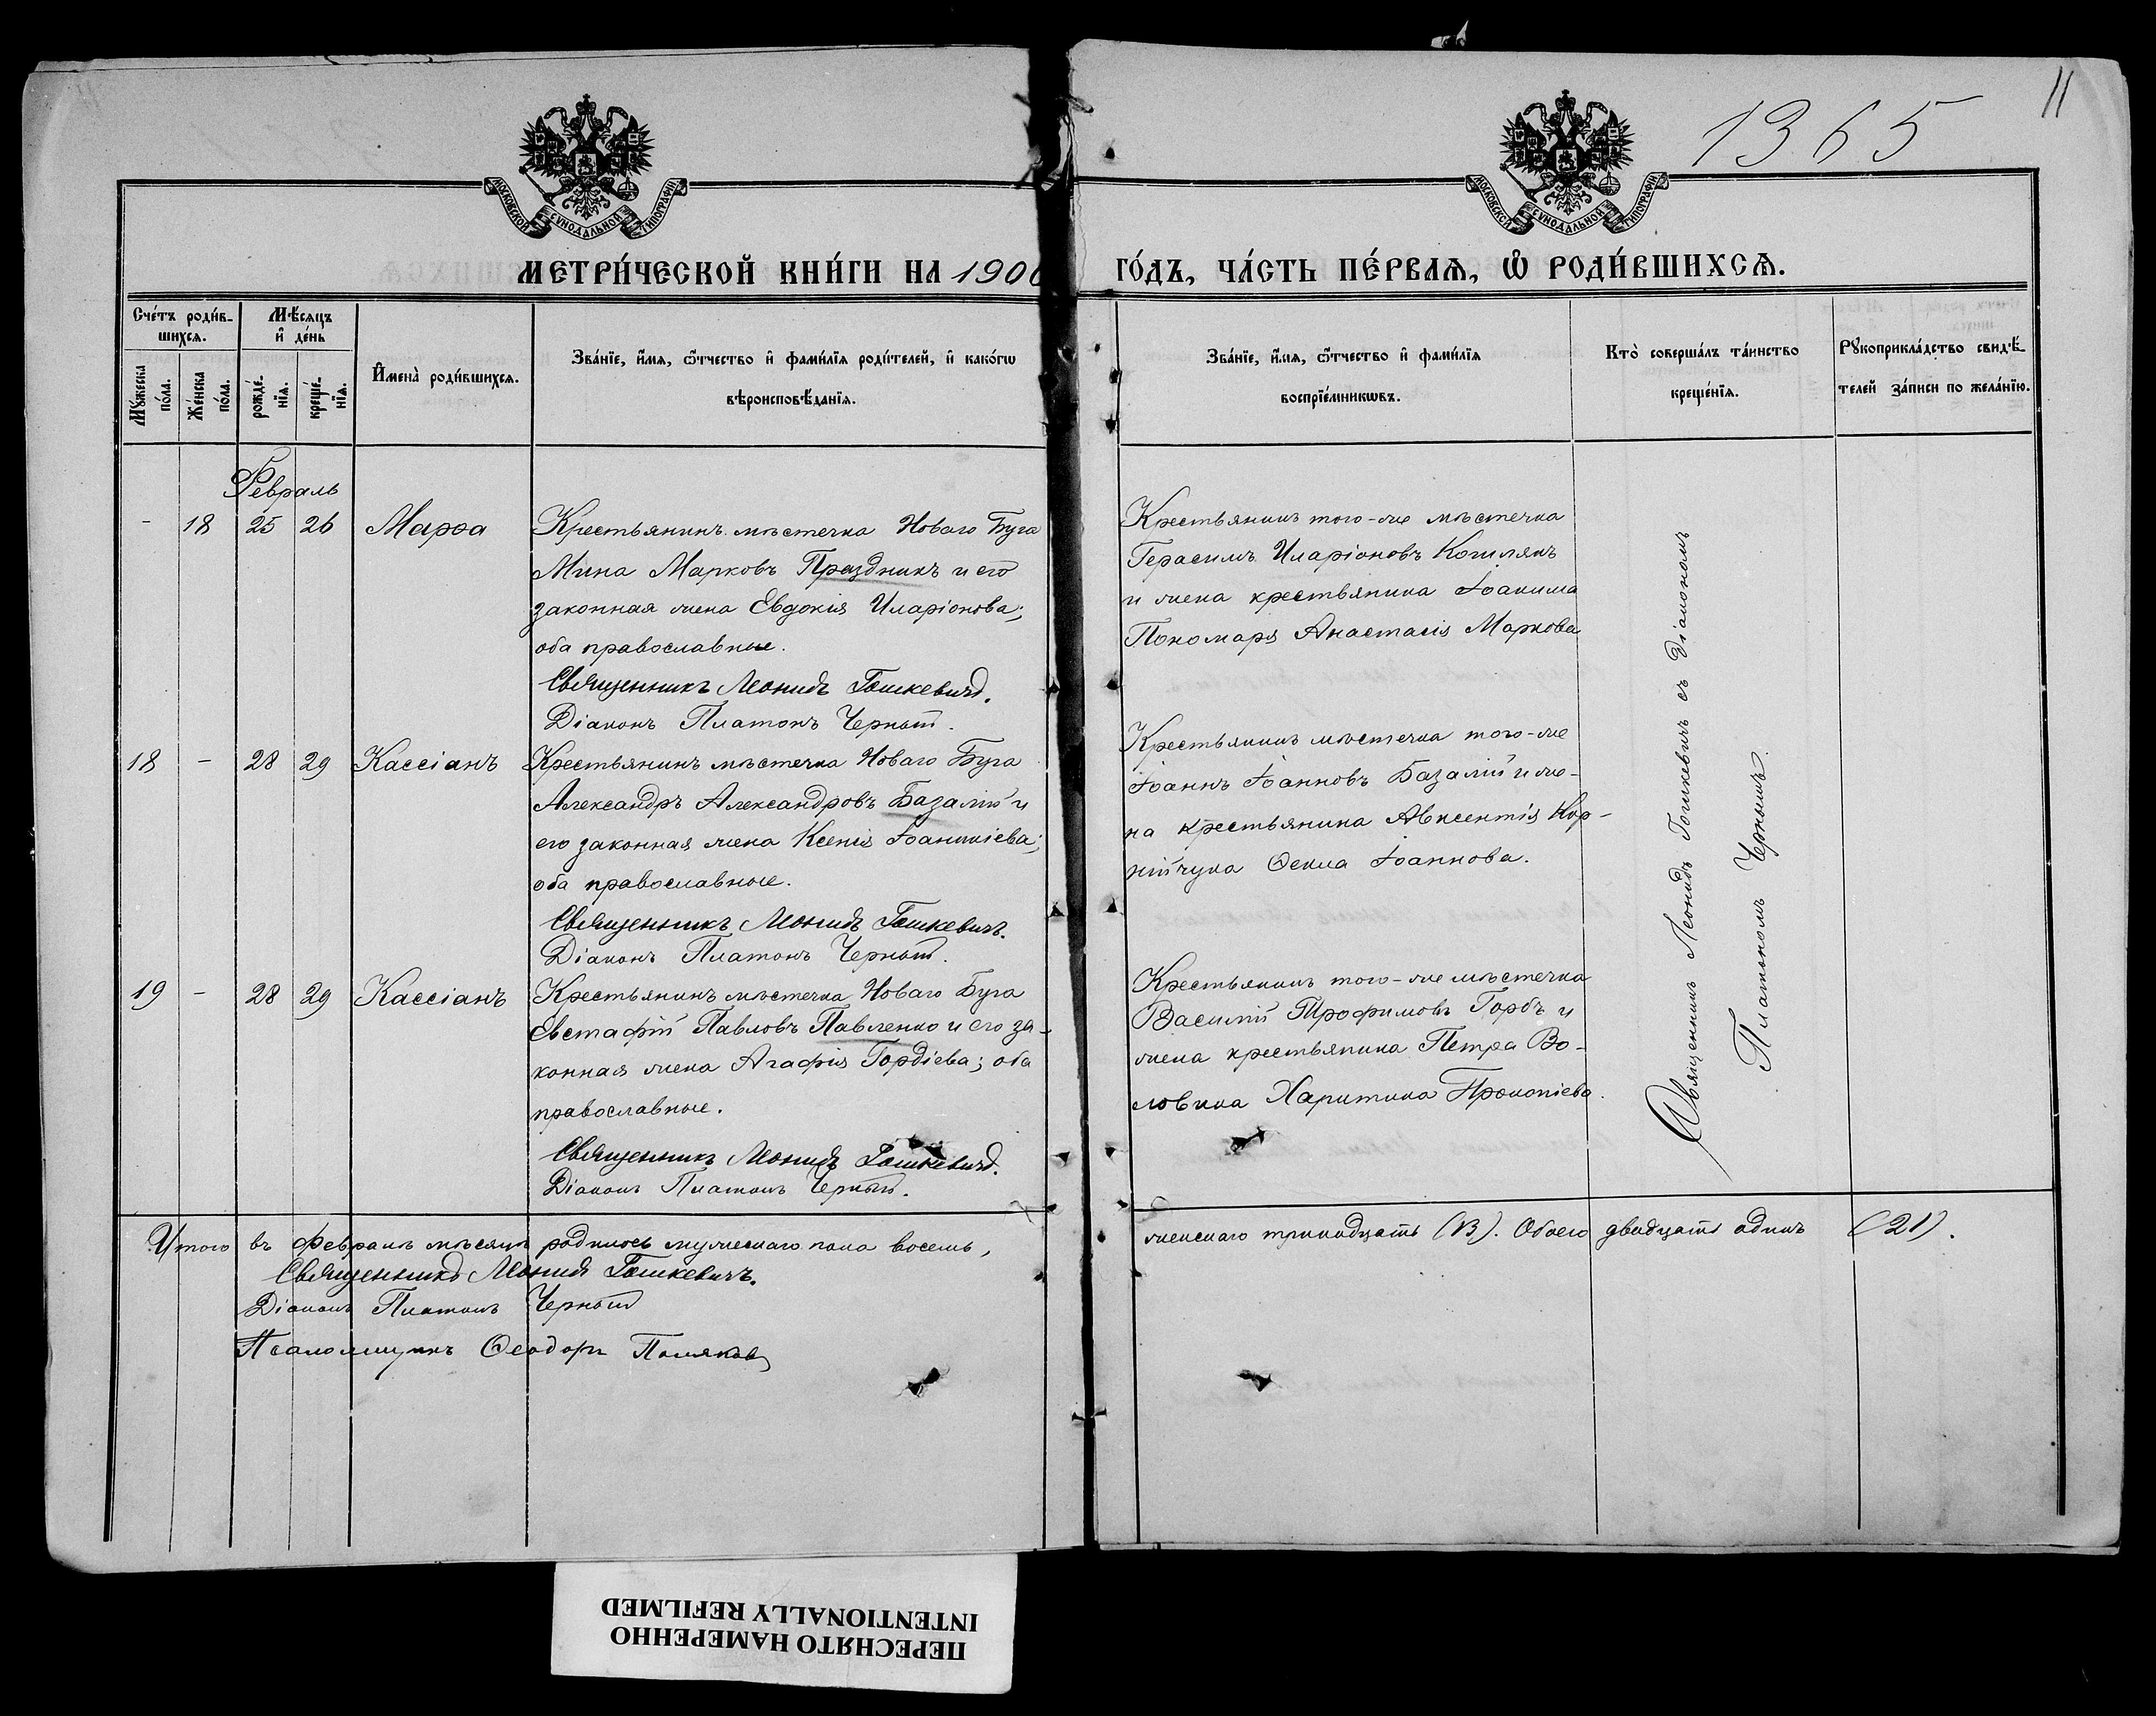 11
1365
МОСКОВСКОЙ СѴНОДАЛЬНОЙ ТИПОГРАФІИ
МОСКОВСКОЙ СѴНОДАЛЬНОЙ ТИПОГРАФІИ
МЕТРИ́ЧЕСКОЙ КНИ́ГИ НА 1900 ГО́ДЪ, ЧА́СТЬ ПЕ́РВАѦ, Ѽ РОДИ́ВШИХСѦ.
Сче́тъ роди́в-
шихсѧ.
Мѣ́сѧцъ
и҆ де́нь
Мꙋ́жеска по́ла.
Же́нска по́ла.
рожде́-
нїѧ.
креще́-
нїѧ.
И҆мена̀ роди́вшихсѧ.
Зва́нїе, и҆́мѧ, ѻ҆́тчество и҆ фами́лїѧ роди́телей, и҆ како́гѡ
вѣроисповѣ́данїѧ.
Зва́нїе, и҆́мѧ, ѻ҆́тчество и҆ фами́лїѧ
воспрїе́мникѡвъ.
Кто̀ соверша́лъ та́инство
креще́нїѧ.
Рꙋкоприкла́дство свидѣ́-
телей за́писи по жела́нїю.
Февраль
- 18 25 26 Марѳа
Крестьянинъ мѣстечка Новаго Буга
Мина Марковъ Праздникъ и его
законная жена Евдокія Иларіонова;
оба православные.
Священникъ Леонидъ Гошкевичъ.
Діаконъ Платонъ Черный.
Крестьянинъ того-же мѣстечка
Герасимъ Иларіоновъ Кошлякъ
и жена крестьянина Іоакима
Пономаря Анастасія Маркова
18 - 28 29 Кассіанъ
Крестьянинъ мѣстечка Новаго Буга
Александръ Александровъ Базалій и
его законная жена Ксенія Іоанникіева;
оба православные.
Священникъ Леонидъ Гошкевичъ.
Діаконъ Платонъ Черный.
Крестьянинъ мѣстечка того-же
Іоаннъ Іоанновъ Базалій и же-
на крестьянина Авксентія Кор-
нійчука Ѳекла Іоаннова.
19 - 28 29 Кассіанъ
Крестьянинъ мѣстечка Новаго Буга
Евстафій Павловъ Павленко и его за-
конная жена Агафія Гордіева; оба
православные.
Священникъ Леонидъ Гошкевичъ.
Діаконъ Платонъ Черный.
Крестьянинъ того-же мѣстечка
Василій Трофимовъ Горбъ и
жена крестьянина Петра Во-
ловика Харитина Прокопіева.
Священникъ Леонидъ Гошкевичъ съ діакономъ
Платономъ Чернымъ.
Итого въ февралѣ мѣсяцѣ родилось мужескаго пола восемь, женскаго тринадцать (13). Обоего двадцать одинъ (21).
Священникъ Леонидъ Гошкевичъ.
Діаконъ Платонъ Черный
Псаломщикъ Ѳеодоръ Поляковъ
ПЕРЕСНЯТО НАМЕРЕННО
INTENTIONALLY REFILMED